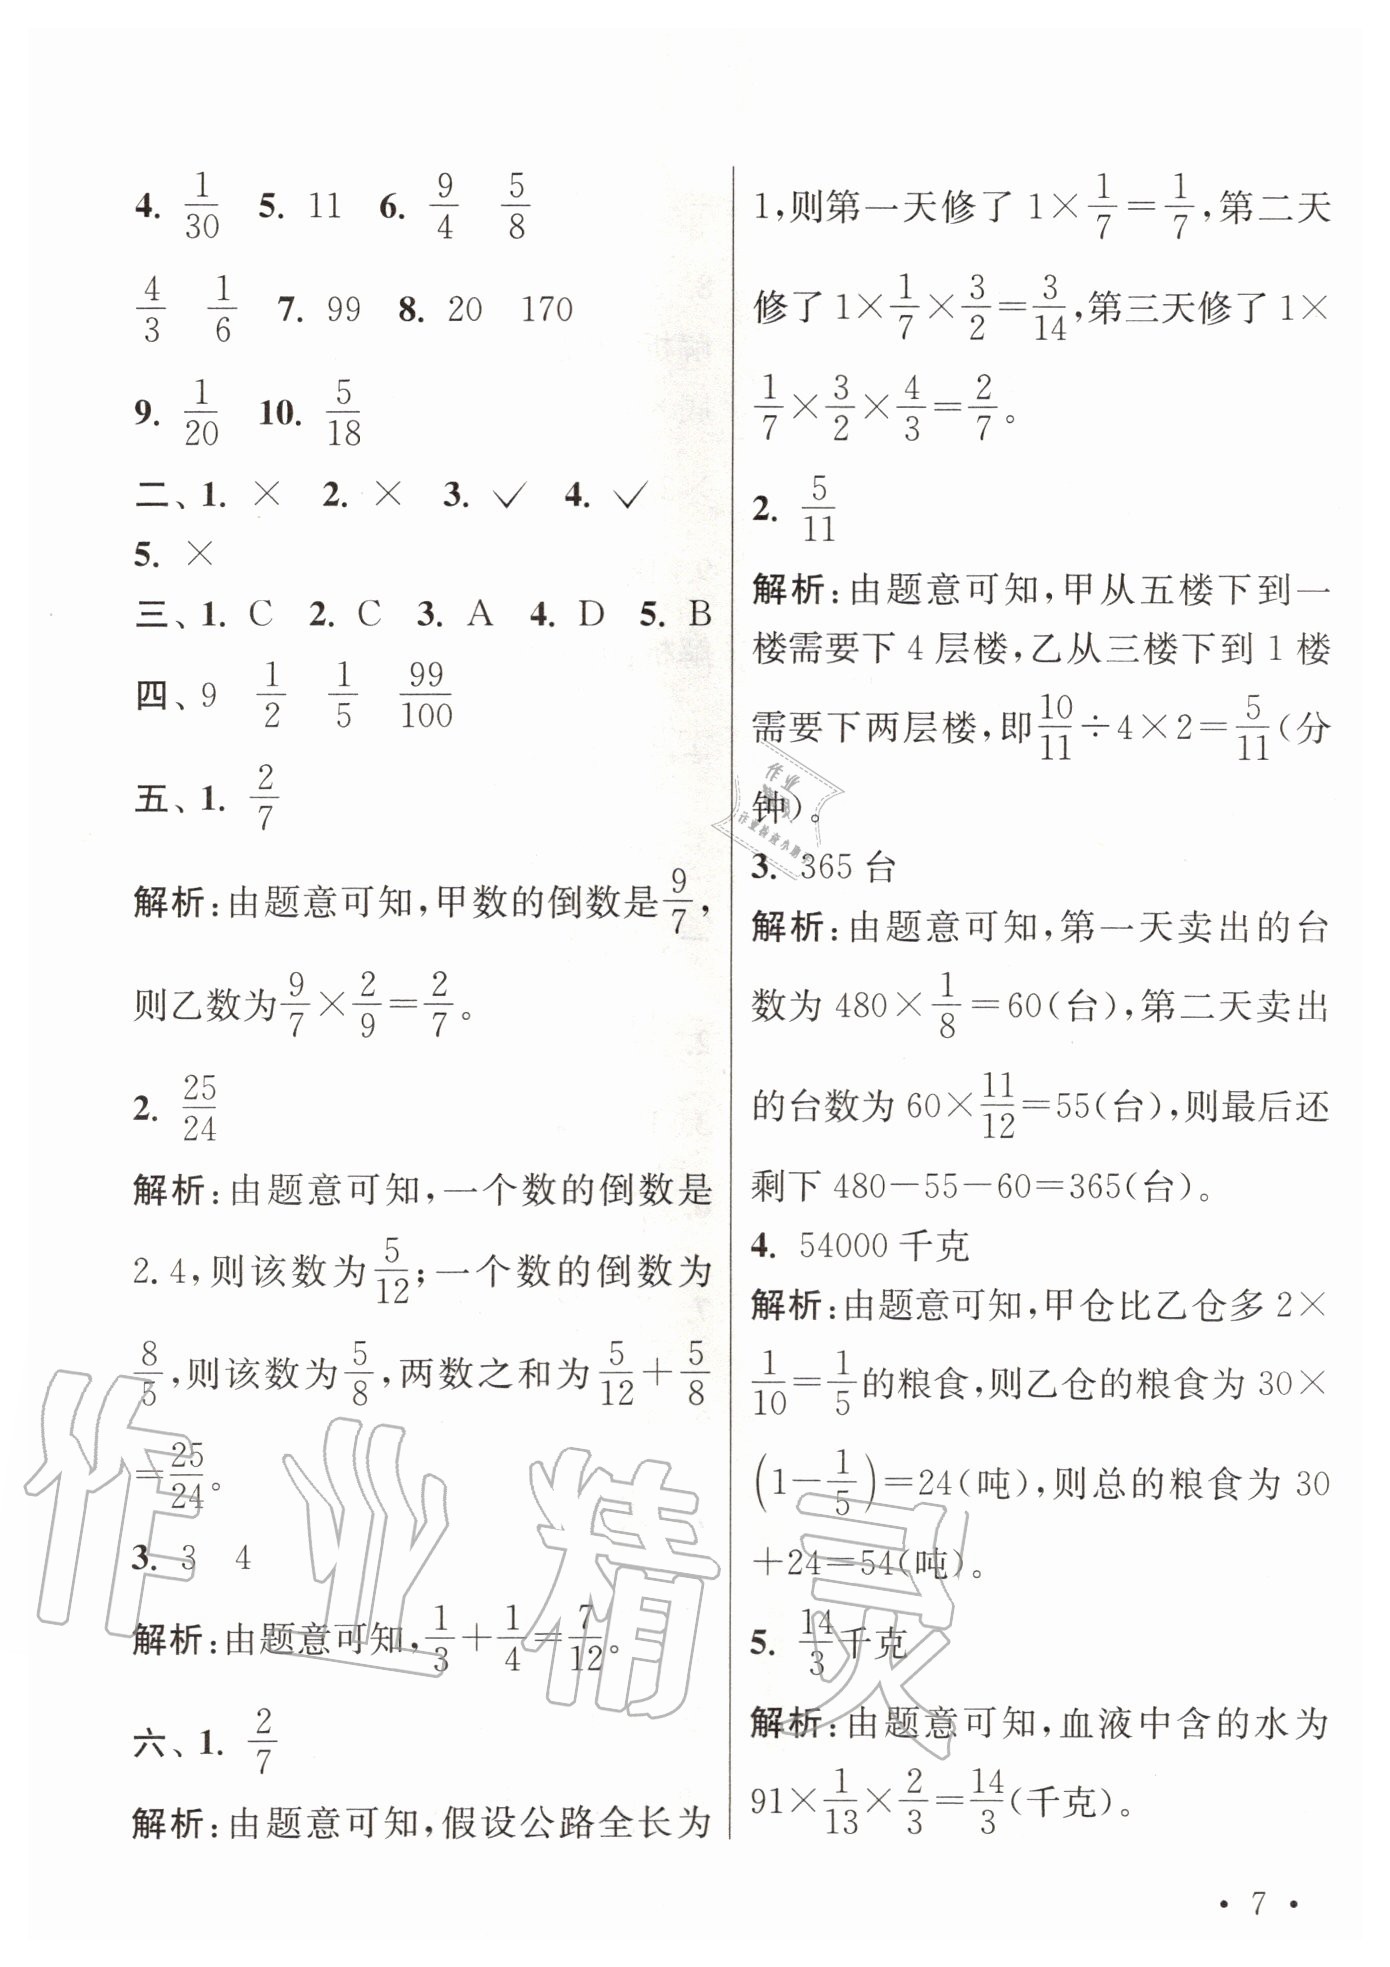 4. 1/30 5. 11 6. 9/4 5/8
4/3 1/6 7. 99 8. 20 170
9. 1/20 10. 5/18
二、1. × 2. × 3. ✓ 4. ✓
5. ×
三、1. C 2. C 3. A 4. D 5. B
四、9 1/2 1/5 99/100
五、1. 2/7
解析:由题意可知,甲数的倒数是9/7,
则乙数为9/7×2/9=2/7。
2. 25/24
解析:由题意可知,一个数的倒数是
2.4,则该数为5/12;一个数的倒数为
8/5,则该数为5/8,两数之和为5/12+5/8
=25/24。
3. 3 4
解析:由题意可知,1/3+1/4=7/12。
六、1. 2/7
解析:由题意可知,假设公路全长为
1,则第一天修了1×1/7=1/7,第二天
修了1×1/7×3/2=3/14,第三天修了1×
1/7×3/2×4/3=2/7。
2. 5/11
解析:由题意可知,甲从五楼下到一
楼需要下4层楼,乙从三楼下到1楼
需要下两层楼,即10/11÷4×2=5/11(分
钟)。
3. 365台
解析:由题意可知,第一天卖出的台
数为480×1/8=60(台),第二天卖出
的台数为60×11/12=55(台),则最后还
剩下480-55-60=365(台)。
4. 54000千克
解析:由题意可知,甲仓比乙仓多2×
1/10=1/5的粮食,则乙仓的粮食为30×
(1-1/5)=24(吨),则总的粮食为30
+24=54(吨)。
5. 14/3千克
解析:由题意可知,血液中含的水为
91×1/13×2/3=14/3(千克)。
· 7 ·
作业精灵
作业